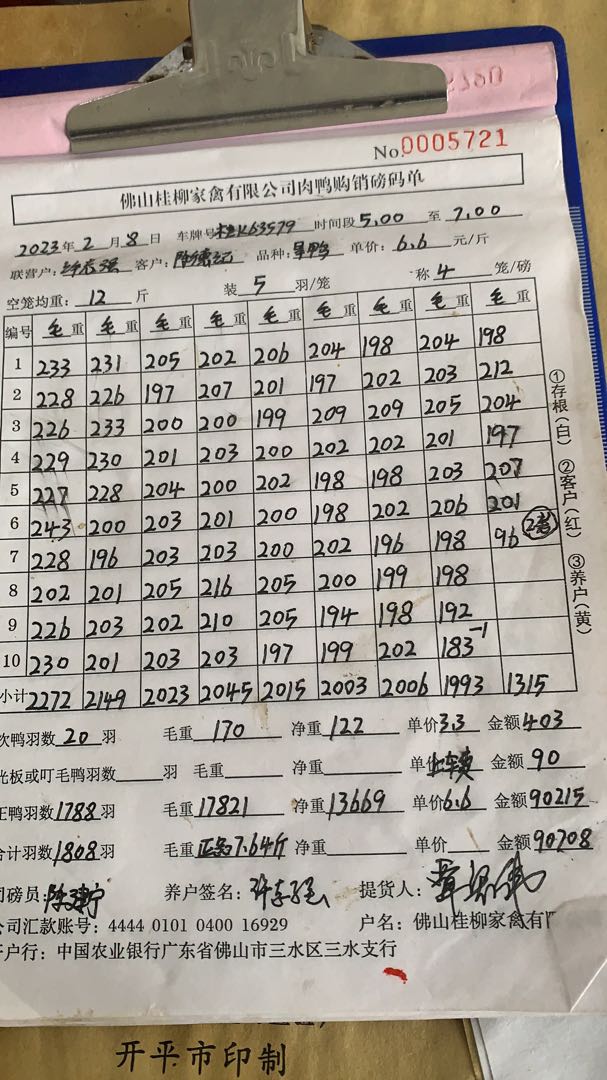 No.0005721
佛山桂柳家禽有限公司肉鸭购销磅码单
2023年2月8日 车牌号 K63579 时间段5.00至7.00
联营户: 客户: 品种: 鸭 单价:6.6元/斤
空笼均重:12斤 装5羽/笼 称4笼/磅
编号 毛重 毛重 毛重 毛重 毛重 毛重 毛重 毛重 毛重
1 233 231 205 202 206 204 198 204 198
2 228 226 197 207 201 197 202 203 212
3 226 233 200 200 199 209 209 205 204
4 229 230 201 203 200 202 202 201 197
5 227 228 204 200 202 198 198 203 207
6 243 200 203 201 200 198 202 206 201
7 228 196 203 203 200 202 196 198 96
8 202 201 205 216 205 200 199 198
9 226 203 202 210 205 194 198 192
10 230 201 203 203 197 199 202 183-1
小计 2272 2149 2023 2045 2015 2003 2006 1993 1315
①存根(白) ②客户(红) ③养户(黄)
次鸭羽数20羽 毛重170 净重122 单价3.3 金额403
光板或叮毛鸭羽数 羽 毛重 净重 单价 金额90
正鸭羽数1788羽 毛重17821 净重13669 单价6.6 金额90215
合计羽数1808羽 毛重 7.64斤 净重 单价 金额90708
司磅员: 养户签名: 提货人:
公司汇款账号: 4444 0101 0400 16929 户名: 佛山桂柳家禽有
开户行: 中国农业银行广东省佛山市三水区三水支行
开平市印制